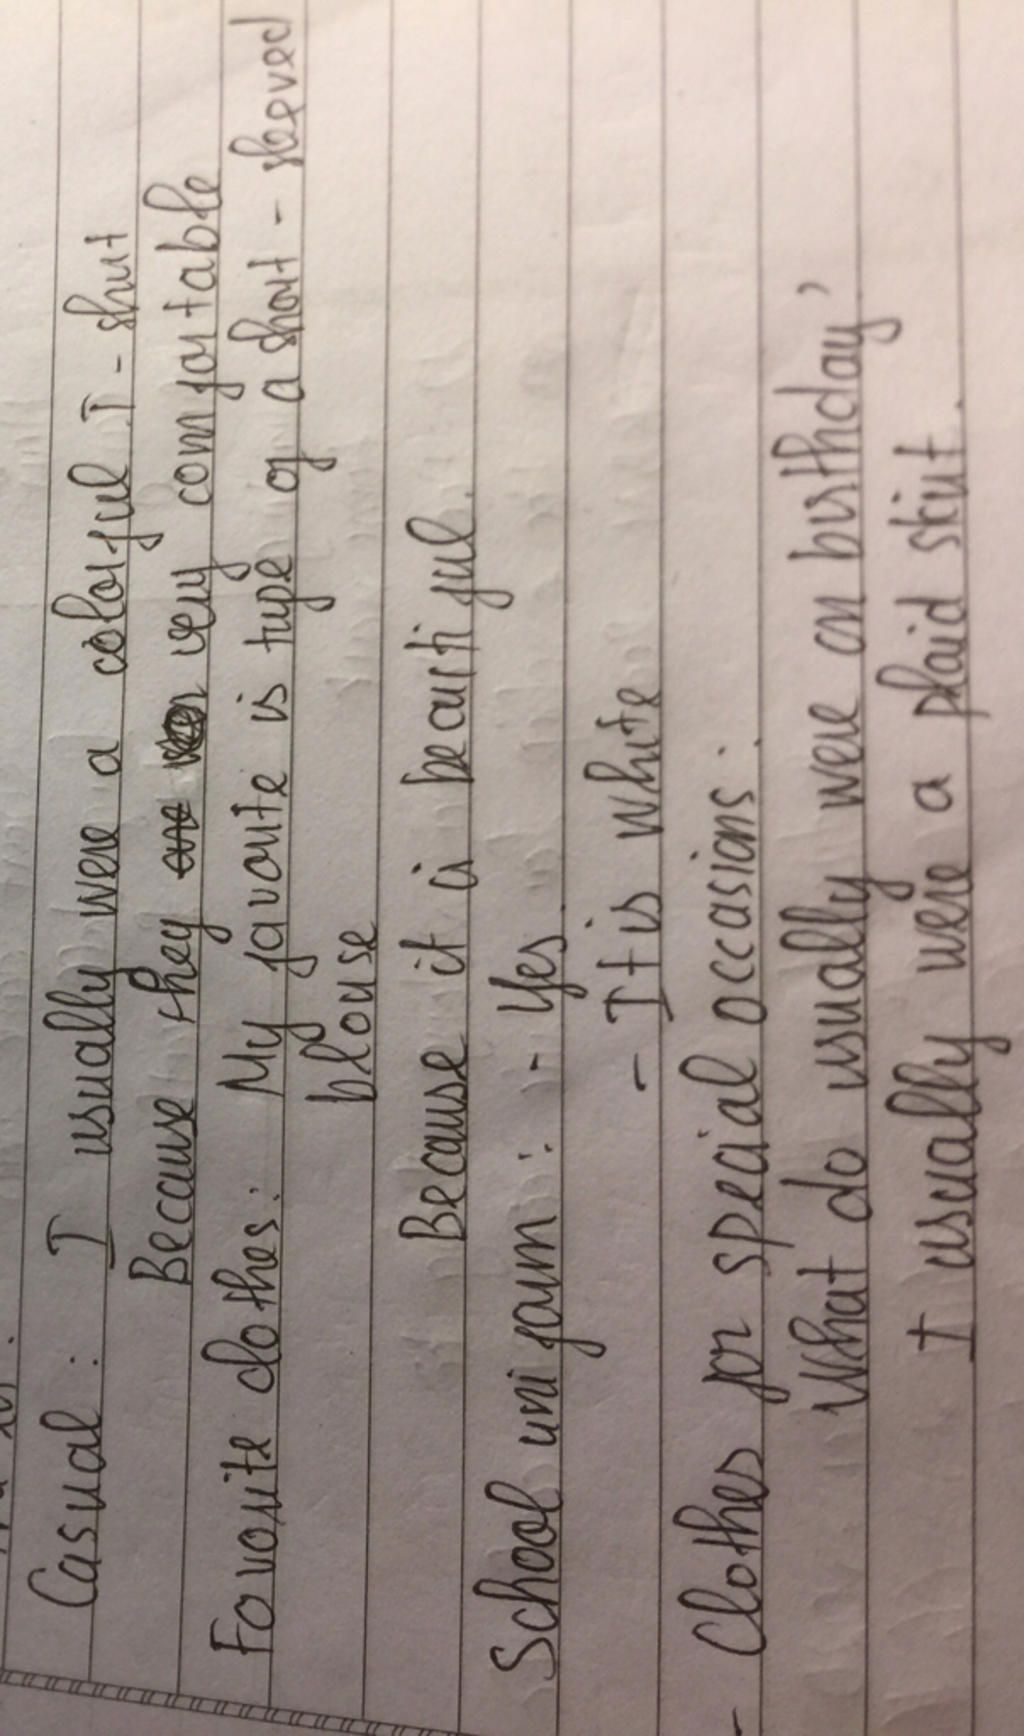 Casual : I usually were a colorful T - shirt
Because they are very comfortable
Favorite clothes : My favorite is type of a short - sleeved
blouse
Because it is beautiful.
School uniform : - Yes.
- It is white
- Clothes for special occasions :
What do usually were on birthday,
I usually were a plaid skirt.